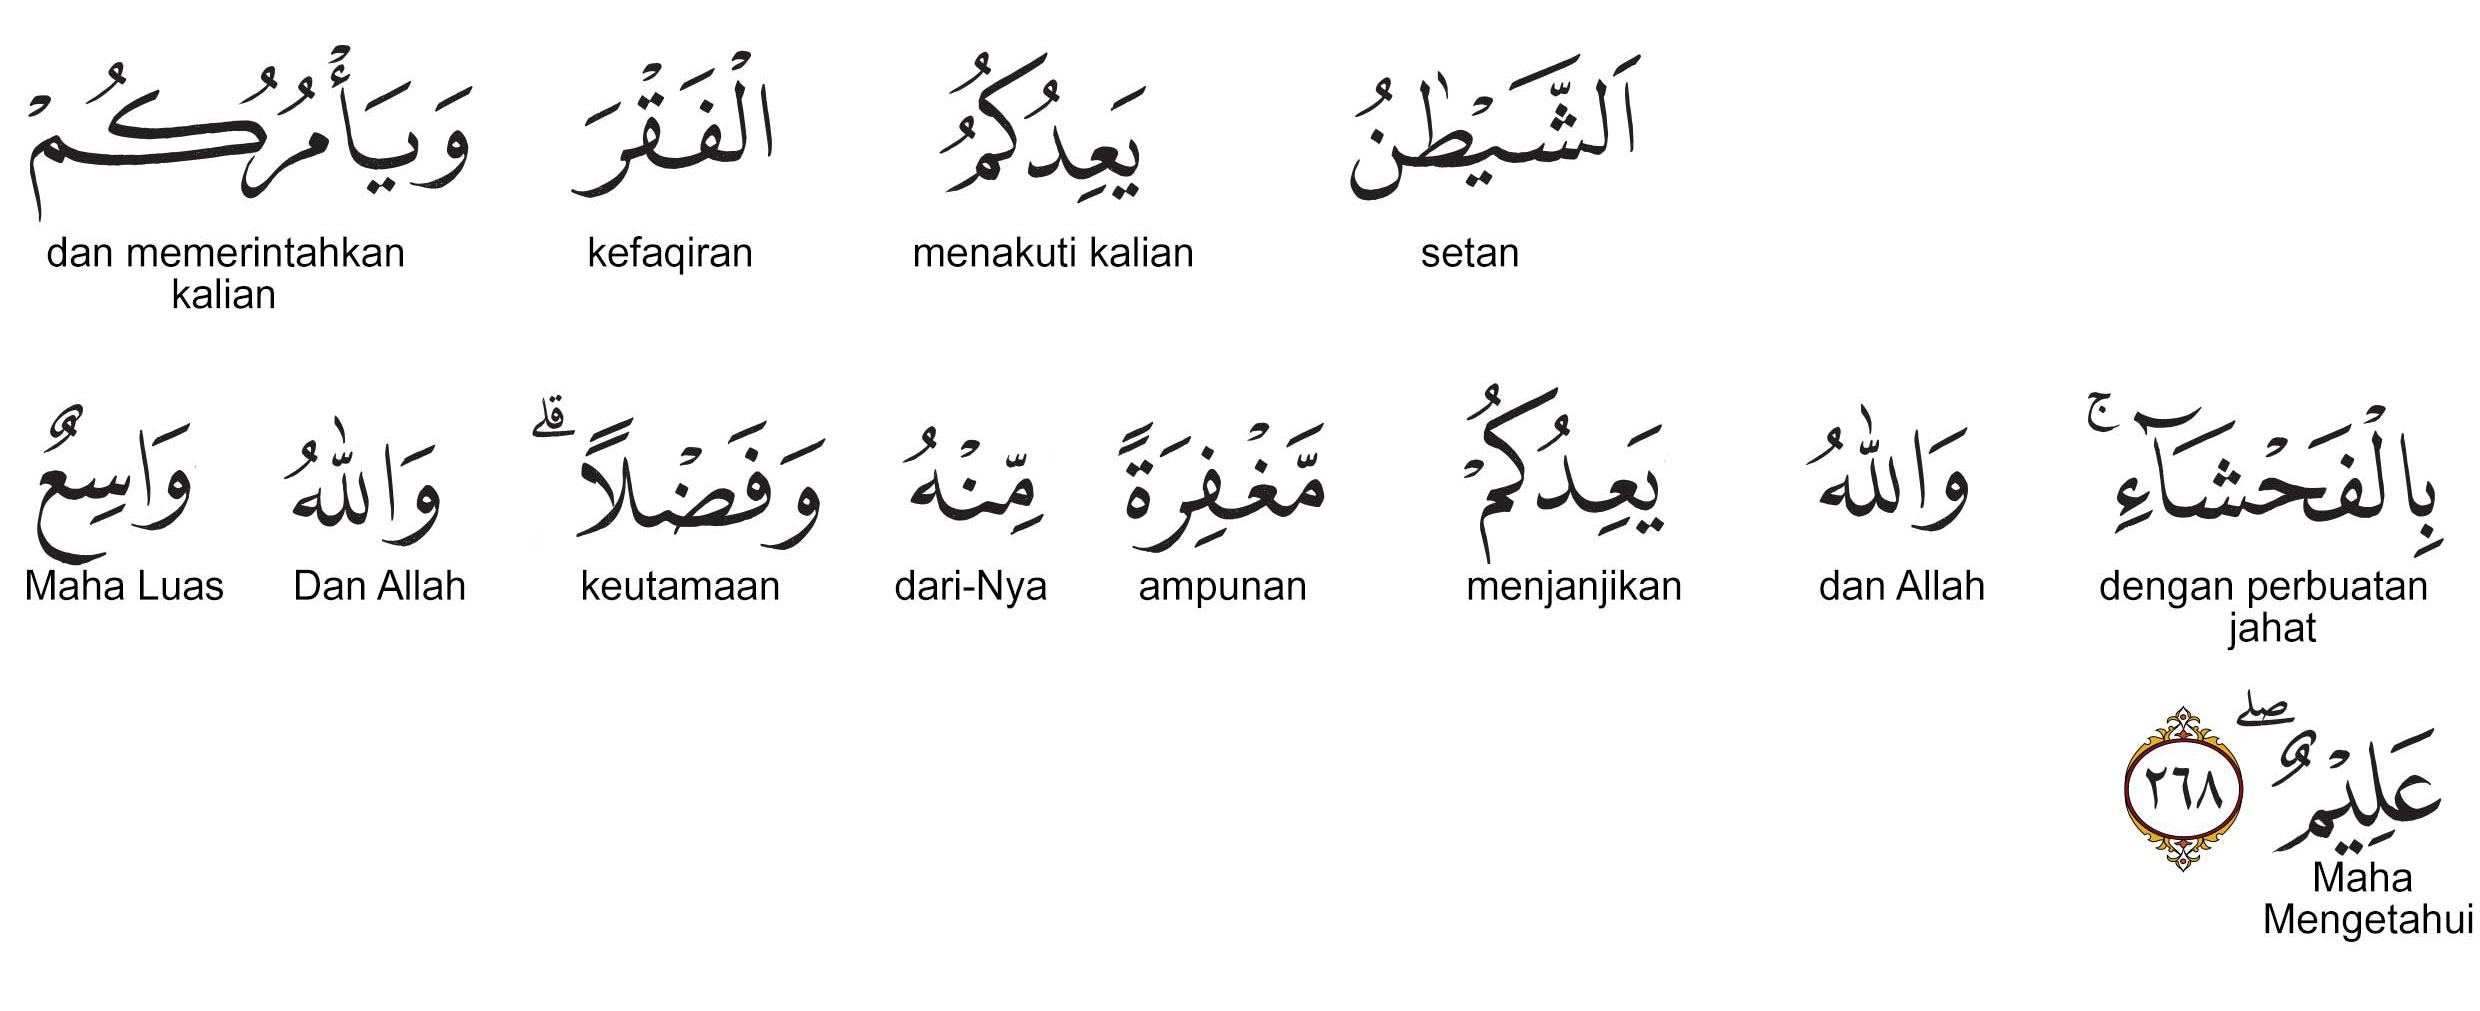 اَلشَّيْطٰنُ يَعِدُكُمُ الْفَقْرَ وَيَأْمُرُكُمْ
setan menakuti kalian kefaqiran dan memerintahkan kalian
بِالْفَحْشَاۤءِ ۚ وَاللّٰهُ يَعِدُكُمْ مَّغْفِرَةً مِّنْهُ وَفَضْلًا ۗ وَاللّٰهُ وَاسِعٌ
dengan perbuatan jahat dan Allah menjanjikan ampunan dari-Nya keutamaan Dan Allah Maha Luas
عَلِيْمٌ ۖ ٢٦٨
Maha Mengetahui